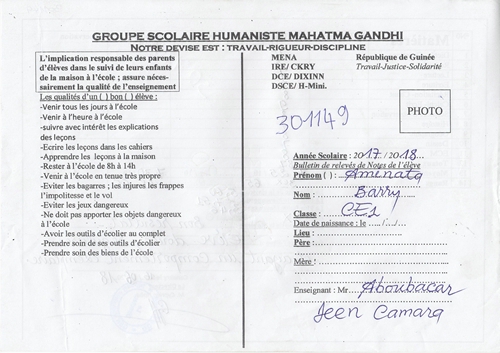 GROUPE SCOLAIRE HUMANISTE MAHATMA GANDHI
NOTRE DEVISE EST : TRAVAIL-RIGUEUR-DISCIPLINE
L'implication responsable des parents
d'élèves dans le suivi de leurs enfants
de la maison à l'école ; assure néces-
sairement la qualité de l'enseignement
Les qualités d'un ( ) bon ( ) élève :
-Venir tous les jours à l'école
-Venir à l'heure à l'école
-suivre avec intérêt les explications
des leçons
-Ecrire les leçons dans les cahiers
-Apprendre les leçons à la maison
-Rester à l'école de 8h à 14h
-Venir à l'école en tenue très propre
-Eviter les bagarres ; les injures les frappes
l'impolitesse et le vol
-Eviter les jeux dangereux
-Ne doit pas apporter les objets dangereux
à l'école
-Avoir les outils d'écolier au complet
-Prendre soin de ses outils d'écolier
-Prendre soin des biens de l'école
MENA République de Guinée
IRE/ CKRY Travail-Justice-Solidarité
DCE/ DIXINN
DSCE/ H-Mini.
301149
PHOTO
Année Scolaire : 2017 / 2018
Bulletin de relevés de Notes de l'élève
Prénom ( ) : Aminata
Nom : Barry
Classe : CE1
Date de naissance : le ..../..../....
Lieu :
Père :
Mère :
Enseignant : Mr Aboubacar
Jeen Camara